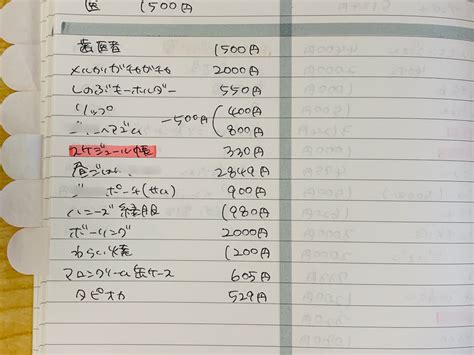 医 1500円
歯医者 1500円
メルカリガチャガチャ 2000円
しのぶキーホルダー 550円
リップ 400円
-500円
ヘアゴム 800円
スケジュール帳 330円
昼ごはん 2849円
ポーチ(せい) 900円
ハニーズ 1980円
ボーリング 2000円
わらい焼 1200円
マロンクリーム缶ケース 605円
タピオカ 529円